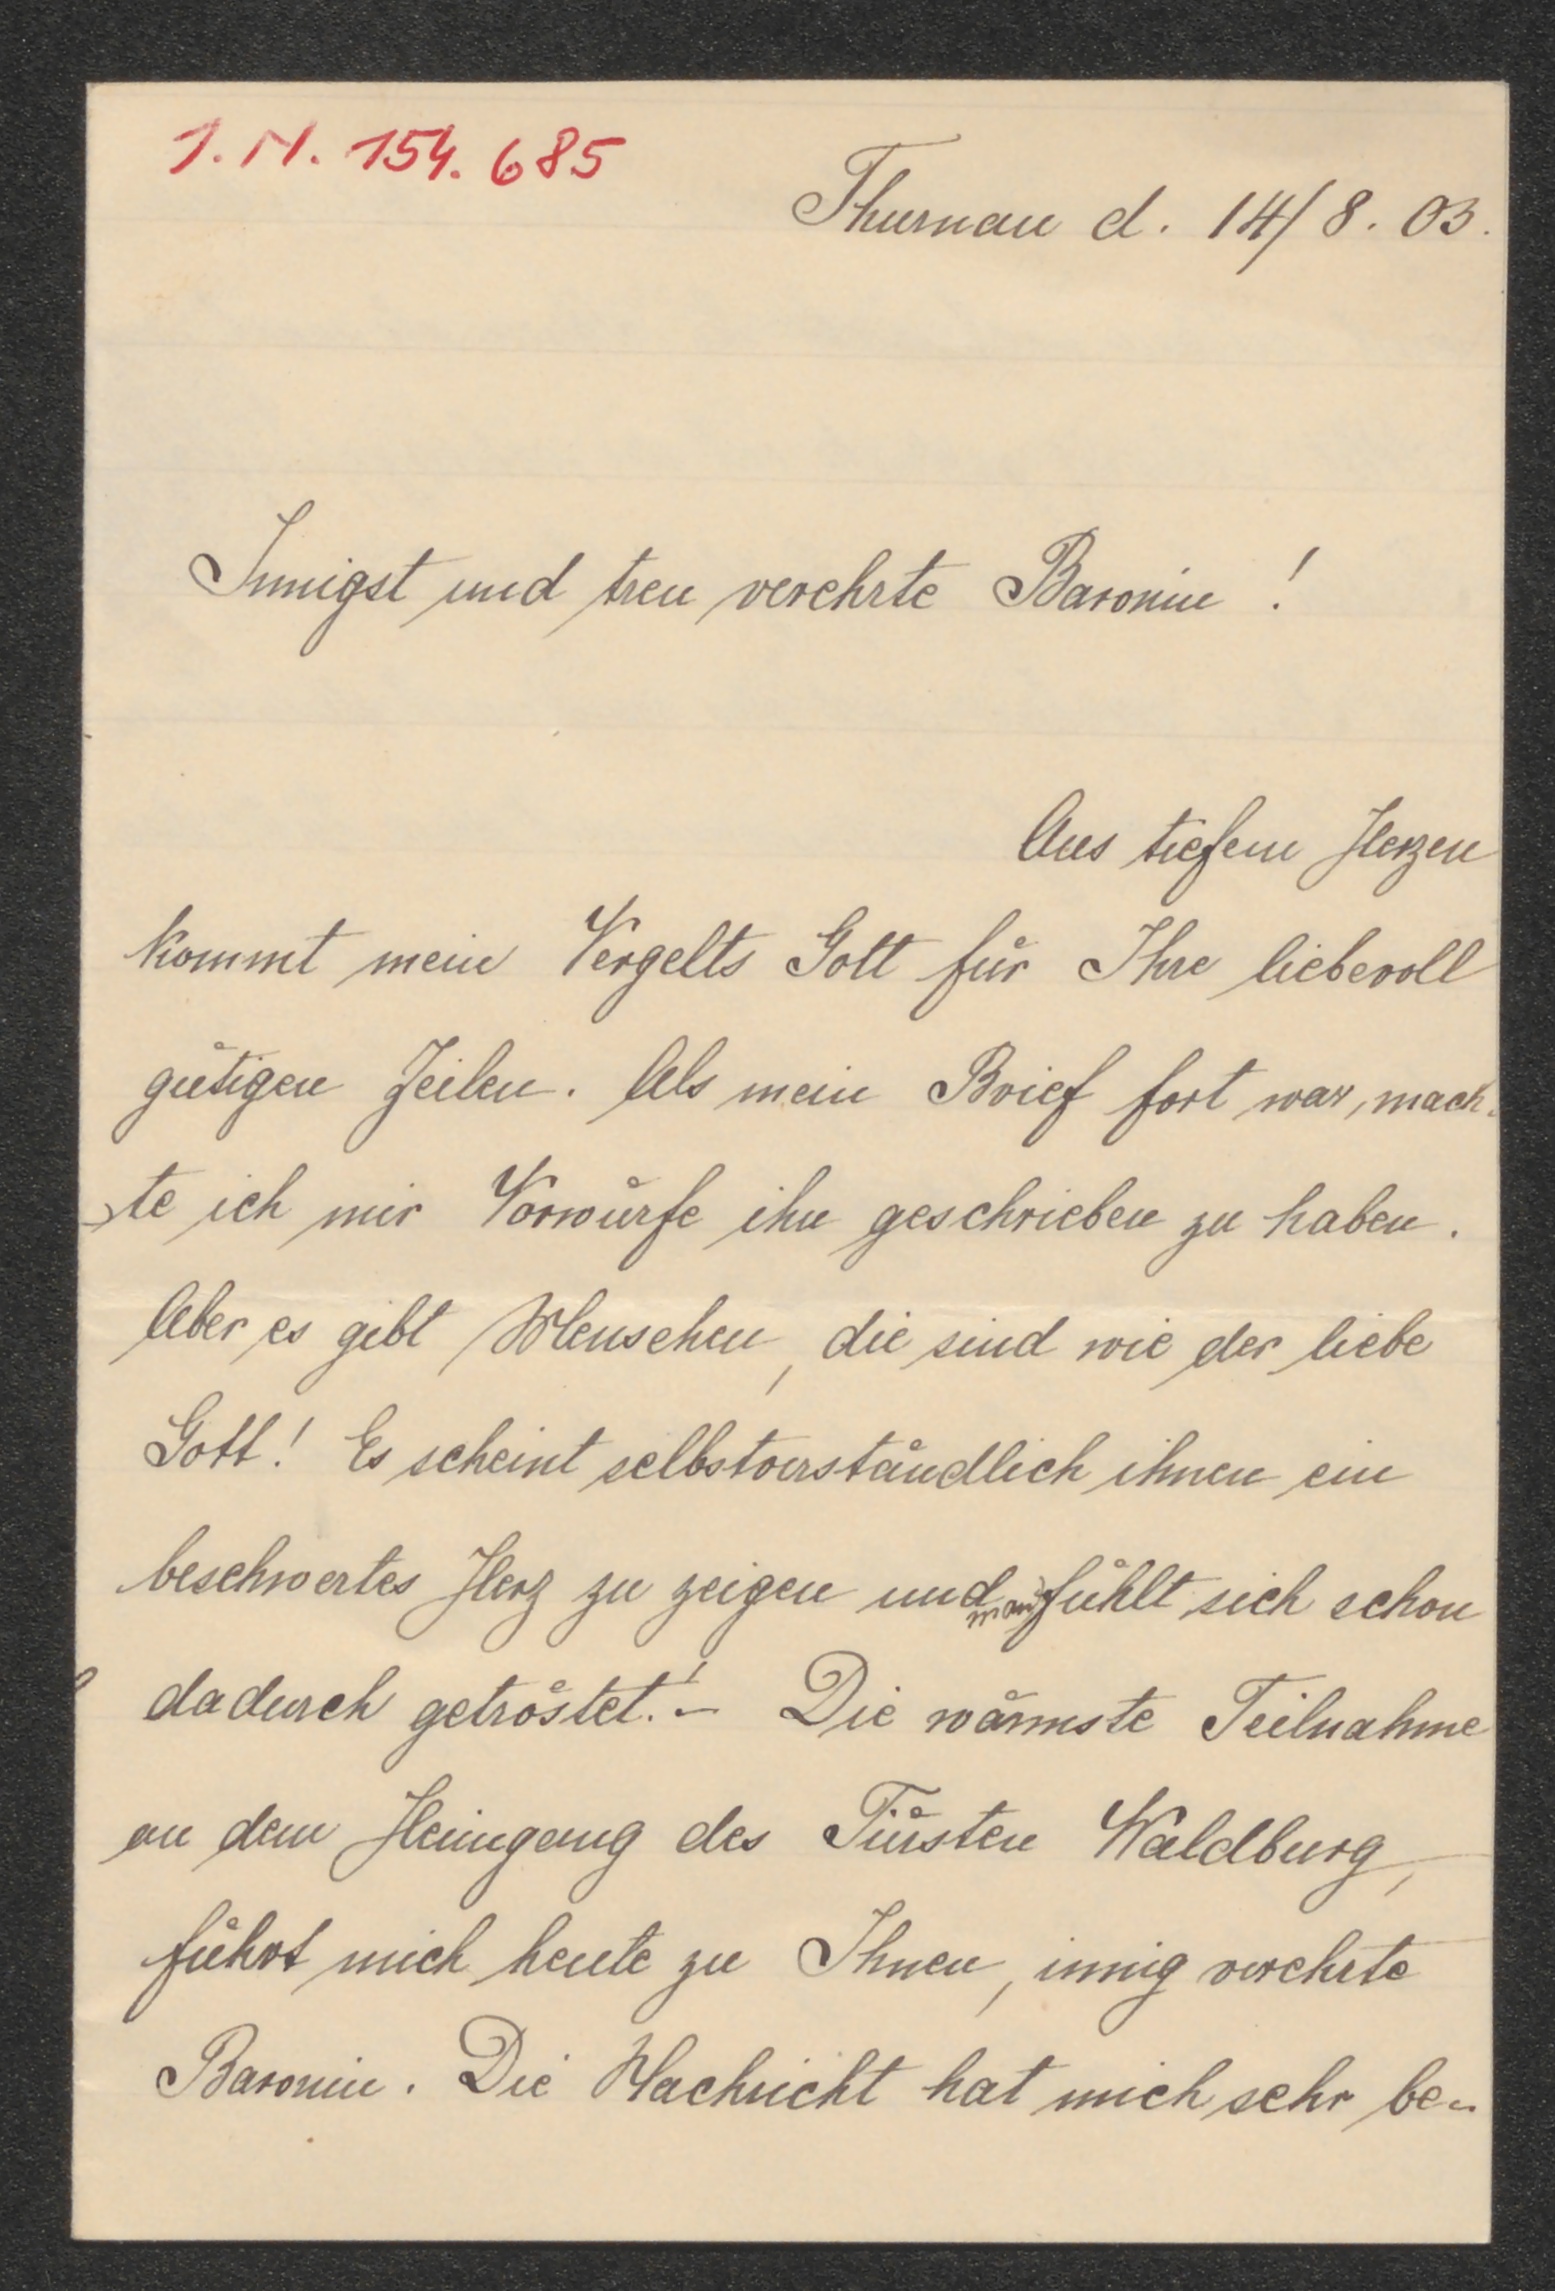 I.N. 154.685
Thurnau d. 14/8. 03.
Innigst und treu verehrte Baronin !
Aus tiefem Herzen
kommt mein Vergelts Gott für Ihre liebevoll
gütigen Zeilen. Als mein Brief fort war, mach-
te ich mir Vorwürfe ihn geschrieben zu haben.
Aber es gibt Menschen, die sind wie der liebe
Gott! Es scheint selbstverständlich ihnen ein
beschwertes Herz zu zeigen und man fühlt sich schon
dadurch getröstet.!– Die wärmste Teilnahme
an dem Heimgang des Fürsten Waldburg,
führt mich heute zu Ihnen, innig verehrte
Baronin. Die Nachricht hat mich sehr be-